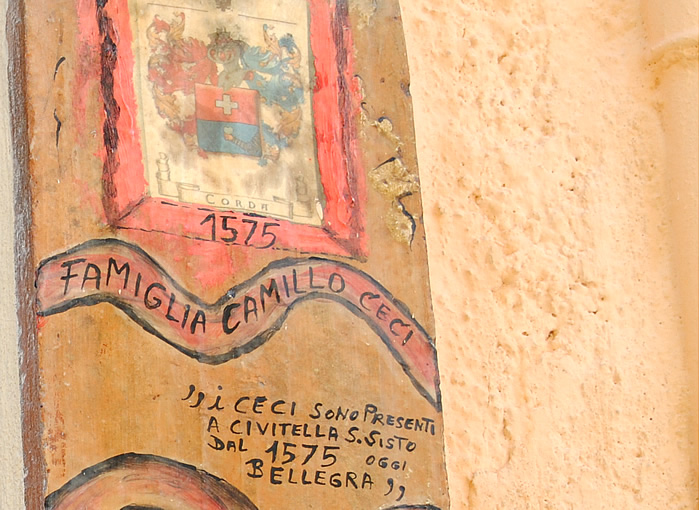 CORDA
1575
FAMIGLIA CAMILLO CECI
,,i CECI SONO PRESENTI
A CIVITELLA S.SISTO
DAL 1575 OGGI
BELLEGRA,,